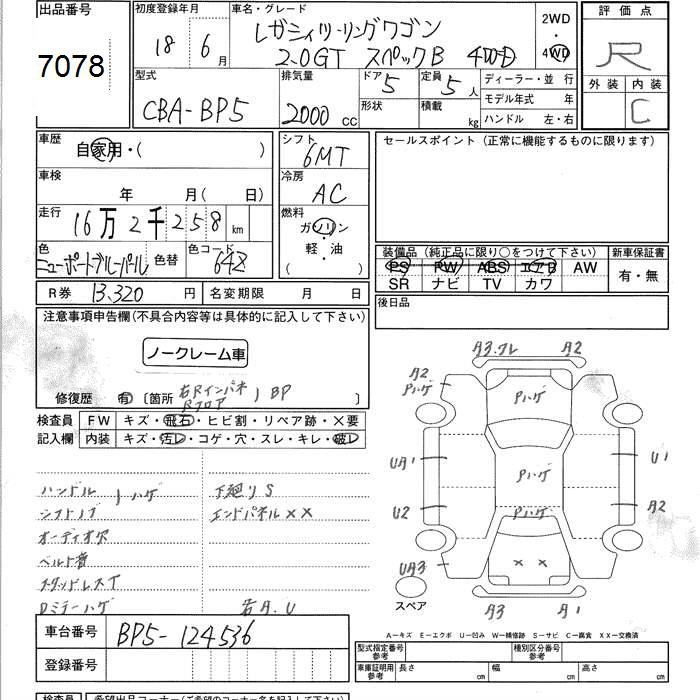 出品番号
7078
初度登録年月
18 6 月
車名・グレード
レガシィツーリングワゴン
2.0GT スペックB 4WD
2WD
・
4WD
評価点
R
外装 内装
C
型式
CBA-BP5
排気量
2000 cc
ドア
5
形状
定員
5 人
積載
kg
ディーラー・並 行
モデル年式 年
ハンドル 左・右
車歴
自家用・( )
シフト
6MT
セールスポイント(正常に機能するものに限ります)
車検
年 月( 日)
冷房
AC
走行
16 万 2 千 258 km
燃料
ガソリン
・
軽・油
( )
色
ニューポートブルーパール
色替
色コード
64Z
装備品(純正品に限り○をつけて下さい)
新車保証書
PS PW ABS エアB AW
SR ナビ TV カワ
有・無
R券 13,320 円
名変期限 月 日
後日品
注意事項申告欄(不具合内容等は具体的に記入して下さい)
ノークレーム車
修復歴 有 〔箇所 右Rインパネ BP 〕
Rフロア
検査員
記入欄
FW キズ・飛石・ヒビ割・リペア跡・×要
内装 キズ・汚レ・コゲ・穴・スレ・キレ・破レ
ハンドル
シフトノブ
ハゲ
オーディオ欠
ベルト音
スタッドレスT
Dミラーハゲ
下廻りS
エンドパネル××
若A.U
A3.ワレ A2
A2
Pハゲ
Pハゲ
UA1
Pハゲ
U1
U2
Pハゲ
A2
UA3
× ×
スペア
A3 A1
A―キズ E―エクボ U―凹み W―補修跡 S―サビ C―腐食 XX―交換済
車台番号
BP5-124536
登録番号
型式指定番号
参考
種別区分番号
参考
車庫証明用
参考
長さ cm
幅 cm
高さ cm
検査員
希望出品コーナー(ご希望のコーナー名を記入して下さい)